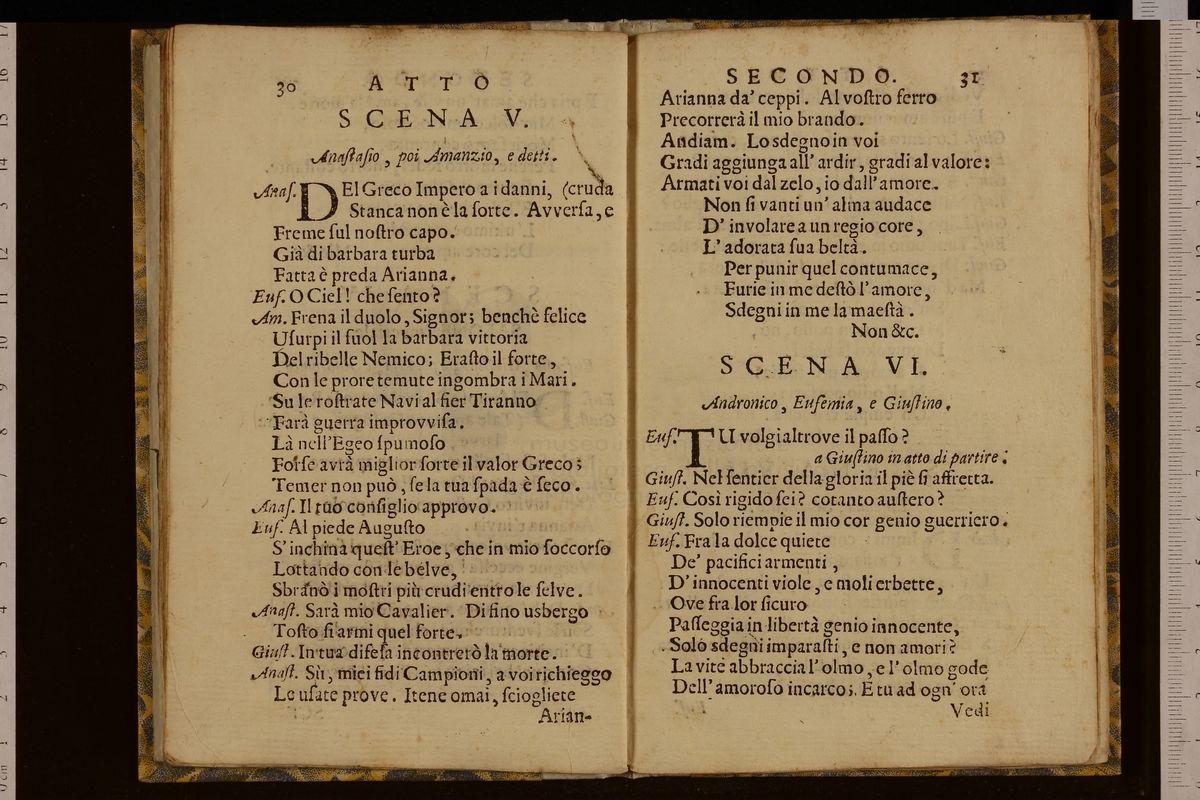 30 ATTO
SCENA V.
Anaſtaſio, poi Amanzio, e detti.
Anaſ. DEl Greco Impero a i danni, (cruda
Stanca non è la ſorte. Avverſa, e
Freme ſul noſtro capo.
Già di barbara turba
Fatta è preda Arianna.
Euf. O Ciel! che ſento?
Am. Frena il duolo, Signor; benchè felice
Uſurpi il ſuol la barbara vittoria
Del ribelle Nemico; Eraſto il forte,
Con le prore temute ingombra i Mari.
Su le roſtrate Navi al fier Tiranno
Farà guerra improvviſa.
Là nell'Egeo ſpumoſo
Forſe avrà miglior ſorte il valor Greco;
Temer non può, ſe la tua ſpada è ſeco.
Anaſ. Il tuo conſiglio approvo.
Euf. Al piede Auguſto
S'inchina queſt'Eroe, che in mio ſoccorſo
Lottando con le belve,
Sbranò i moſtri più crudi entro le ſelve.
Anaſt. Sarà mio Cavalier. Di fino usbergo
Toſto ſi armi quel forte.
Giuſt. In tua difeſa incontrerò la morte.
Anaſt. Sù, miei fidi Campioni, a voi richieggo
Le uſate prove. Itene omai, ſciogliete
Arian-
SECONDO. 31
Arianna da' ceppi. Al voſtro ferro
Precorrerà il mio brando.
Andiam. Lo sdegno in voi
Gradi aggiunga all' ardir, gradi al valore:
Armati voi dal zelo, io dall'amore.
Non ſi vanti un' alma audace
D' involare a un regio core,
L' adorata ſua beltà.
Per punir quel contumace,
Furie in me deſtò l'amore,
Sdegni in me la maeſtà.
Non &c.
SCENA VI.
Andronico, Eufemia, e Giuſtino.
Euf. TU volgi altrove il paſſo?
a Giuſtino in atto di partire.
Giuſt. Nel ſentier della gloria il piè ſi affretta.
Euf. Così rigido ſei? cotanto auſtero?
Giuſt. Solo riempie il mio cor genio guerriero.
Euf. Fra la dolce quiete
De' pacifici armenti,
D' innocenti viole, e moli erbette,
Ove fra lor ſicuro
Paſſeggia in libertà genio innocente,
Solo sdegni imparaſti, e non amori?
La vite abbraccia l'olmo, e l'olmo gode
Dell'amoroſo incarco; E tu ad ogn' ora
Vedi